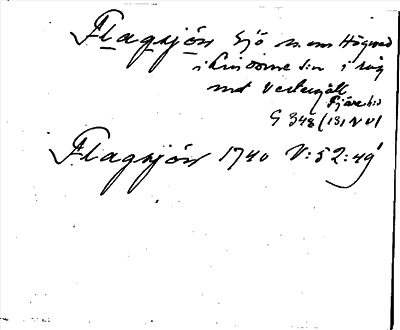 Flagsjön Sjö n. om Högvad
i Lindome sn i råg
mot Västergötl
Fjäre hd
G 348 (131 V v)
Flagsjön 1740 V:52:49